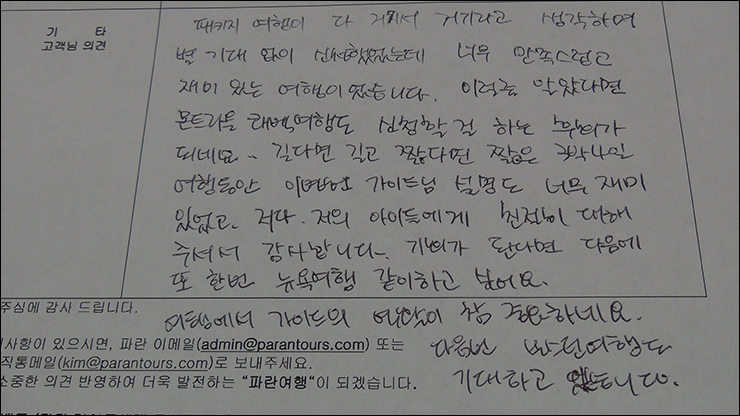 기 타
고객님 의견
패키지 여행이 다 거기서 거기라고 생각하여
별 기대 없이 신청했었는데 너무 만족스럽고
재미 있는 여행이였습니다. 이럴줄 알았다면
몬트리올 퀘백여행도 신청할 걸 하는 후회가
되네요~ 길다면 길고 짧다면 짧은 3박4일
여행동안 이만섭 가이드님 설명도 너무 재미
있었고. 저다. 저희 아이들에게 친절히 대해
주셔서 감사합니다~. 기회가 된다면 다음에
또 한번 뉴욕여행 같이하고 싶어요.
여행에서 가이드의 역할이 참 중요하네요.
다음번 파란여행도
기대하고 있습니다.
주심에 감사 드립니다.
사항이 있으시면, 파란 이메일(admin@parantours.com) 또는
직통메일(kim@parantours.com)로 보내주세요.
소중한 의견 반영하여 더욱 발전하는 "파란여행"이 되겠습니다.